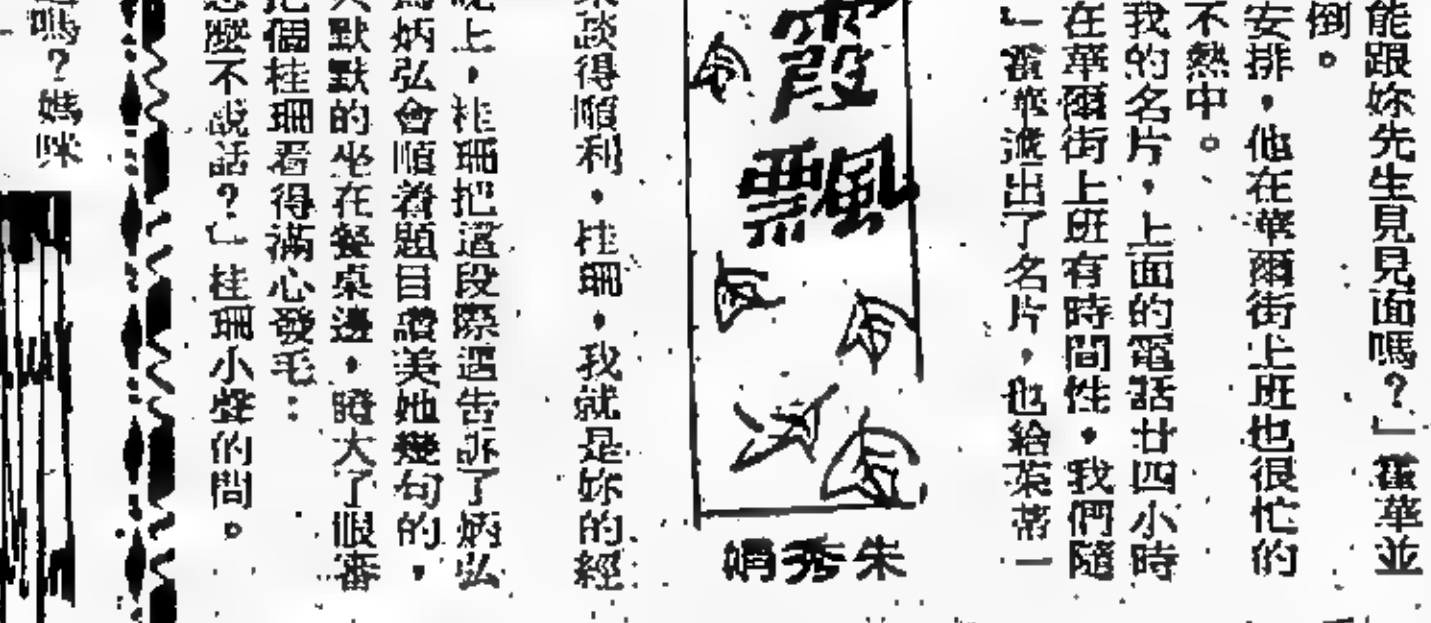 能跟妳先生見見面嗎?」霍華並
倒。
安排,他在華爾街上班也很忙的
不熱中。
我的名片,上面的電話廿四小時
在華爾街上班有時間性,我們隨
」霍華遞出了名片,也給茱蒂一
霞飄
朱秀娟
談得順利,桂珊,我就是妳的經
晚上,桂珊把這段際遇告訴了炳弘
炳弘會順着題目讚美她幾句的,
默默的坐在餐桌邊,睜大了眼審
把個桂珊看得滿心發毛:
怎麼不說話?」桂珊小聲的問。
嗎?媽咪